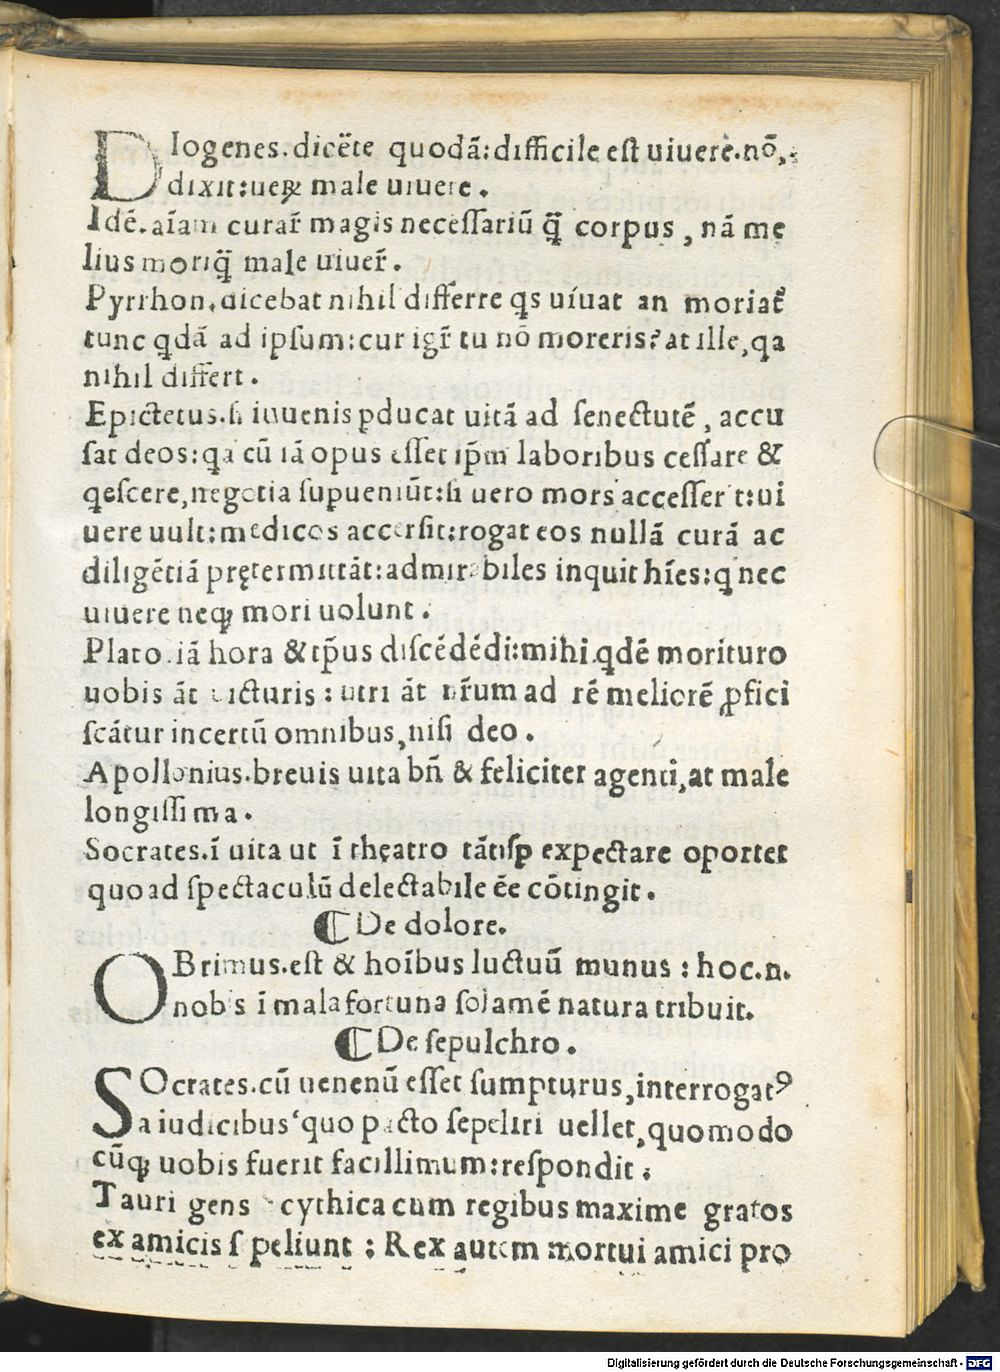 DIogenes.dicẽte quodã:difficile eſt uiuere.nõ,
dixit:ueꝝ male uiuere.
Idẽ.aĩam curar̃ magis neceſſariũ q̃̃ corpus, nã me
lius moriq̃̃ male uiuer̃.
Pyrrhon.dicebat nihil differre qs uiuat an moriat᷑
tunc qdã ad ipſum:cur igr̃ tu nõ moreris? at ille, qa
nihil differt.
Epictetus.ſi iuuenis ꝑducat uitã ad ſenectutẽ, accu
ſat deos:qa cũ iã opus eſſet ip̃m laboribus ceſſare &
qeſcere, negotia ſupueniũt:ſi uero mors acceſſerit:ui
uere uult:medicos accerſit:rogat eos nullã curã ac
diligẽtiã prętermittãt:admirabiles inquit hĩes:q nec
uiuere neqꝫ mori uolunt.
Plato.iã hora & tp̃us diſcẽdẽdi:mihi.qdẽ morituro
uobis ãt uicturis: utri ãt nr̃um ad rẽ meliorẽ ꝓfici
ſcãtur incertũ omnibus, niſi deo.
Apollonius.breuis uita bñ & feliciter agenti, at male
longiſſima.
Socrates.ĩ uita ut ĩ theatro tãtiſꝑ expectare oportet
quoad ſpectaculũ delectabile ẽe cõtingit.
¶De dolore.
OBrimus.eſt & hoĩbus luctuũ munus: hoc.n.
nobis ĩ mala fortuna ſolamẽ natura tribuit.
¶De ſepulchro.
SOcrates.cũ uenenũ eſſet ſumpturus, interrogatꝰ
a iudicibus quo pacto ſepeliri uellet, quomodo
cũqꝫ uobis fuerit facillimum:reſpondit.
Tauri gens ſcythica cum regibus maxime gratos
ex amicis ſepeliunt: Rex autem mortui amici pro
Digitalisierung gefördert durch die Deutsche Forschungsgemeinschaft - DFG